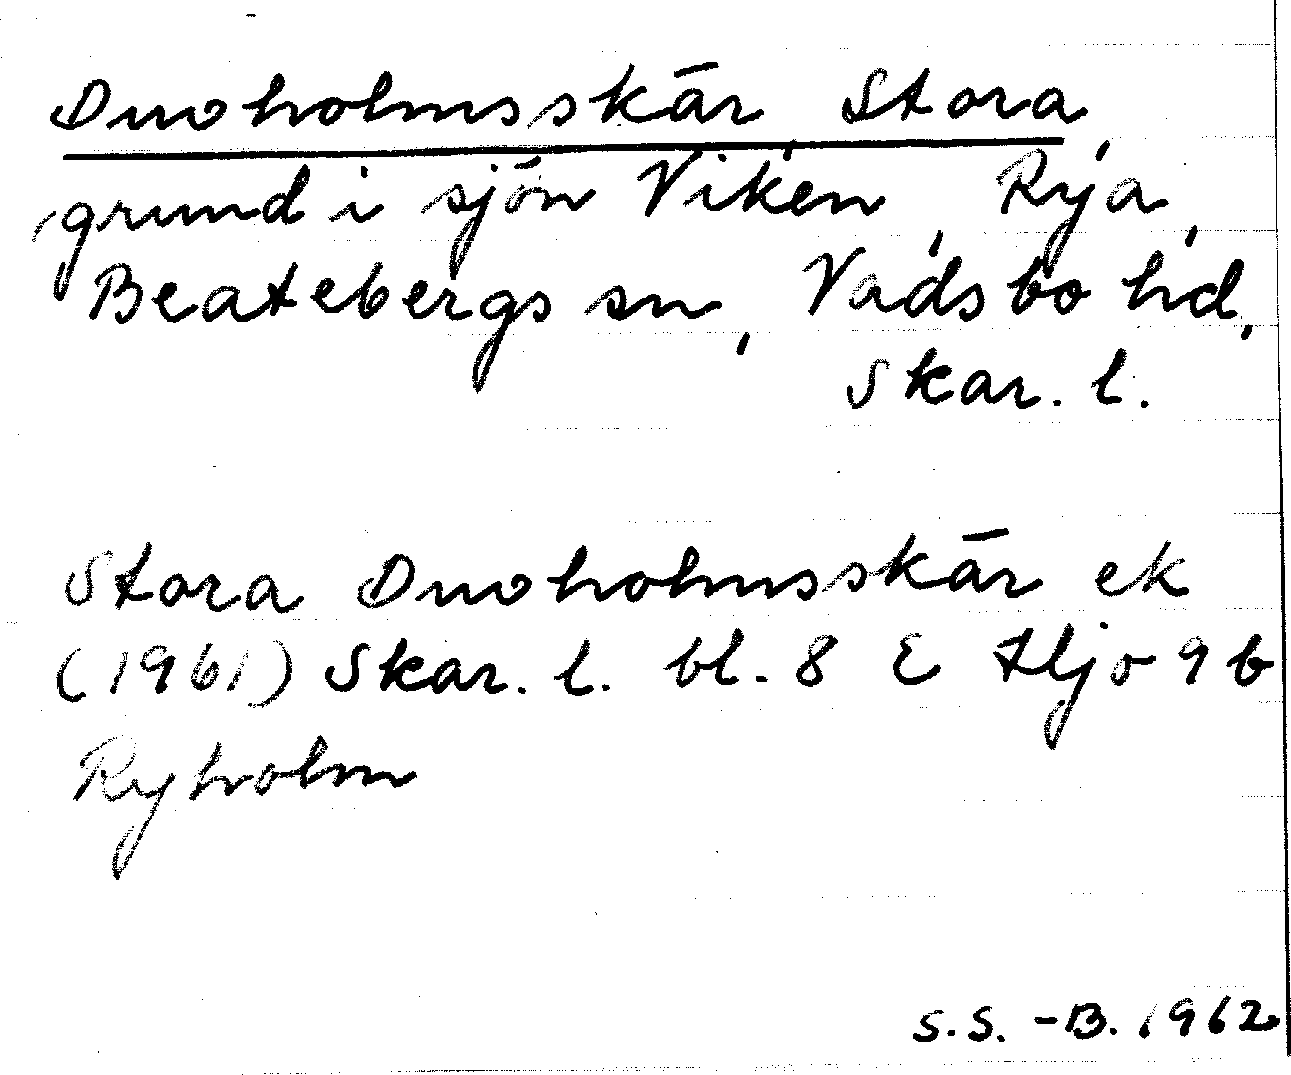 Duvholmsskär, Stora,
grund i sjön Viken, Rya,
Beatebergs sn, Vadsbo hd,
Skar. l.
Stora Duvholmsskär ek
(1961) Skar. l. bl. 8 E Hjo 9 b
Ryholm
S.S.-B. 1962